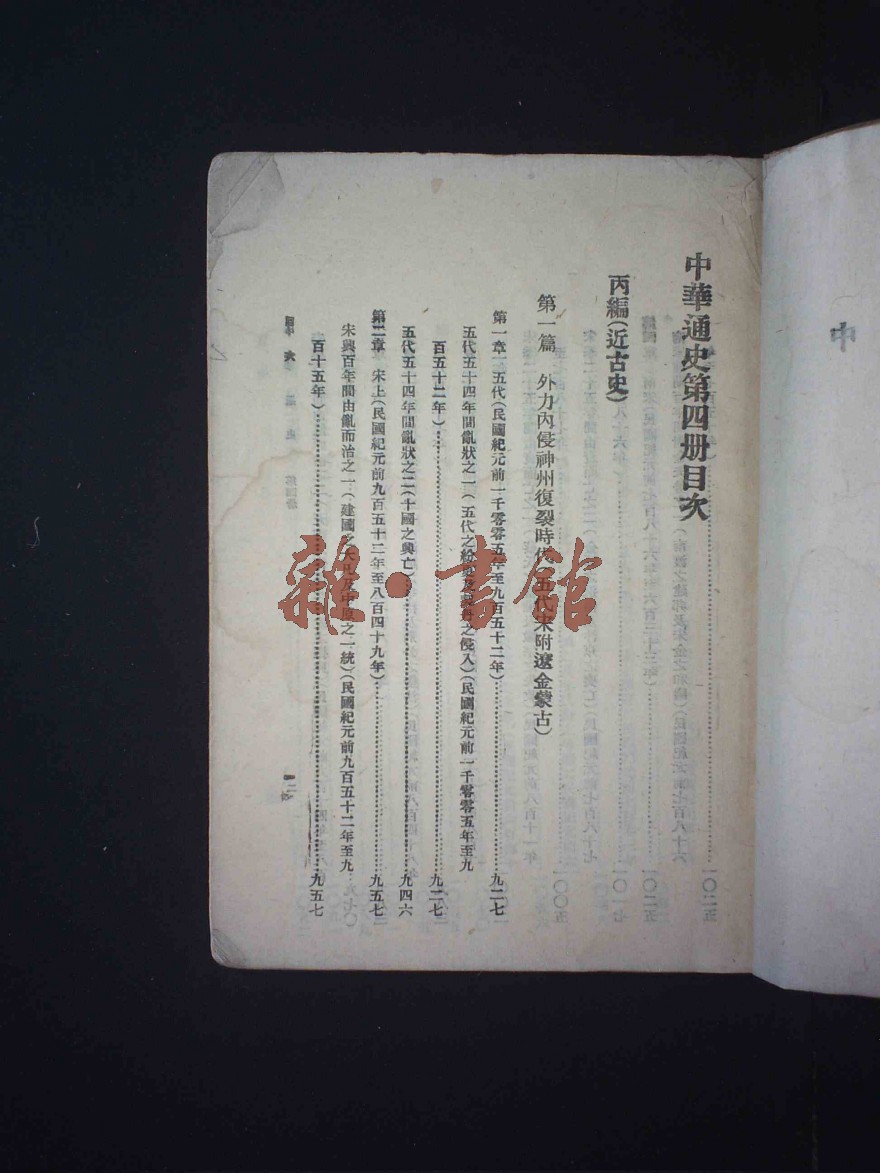 中華通史第四册目次
丙編(近古史)
第一篇 外力內侵神州復裂時代(五代宋附遼金蒙古)
第一章 五代(民國紀元前一千零零五年至九百五十二年)……九二七
五代五十四年間亂狀之一(五代之紛更及契丹之侵入)(民國紀元前一千零零五年至九
百五十二年)……九二七
五代五十四年間亂狀之二(十國之興亡)……九四六
第二章 宋上(民國紀元前九百五十二年至八百四十九年)……九五七
宋興百年間由亂而治之一(建國之大凡及中原之一統)(民國紀元前九百五十二年至九
百十五年)……九五七
目 次
一
中
雜·書館